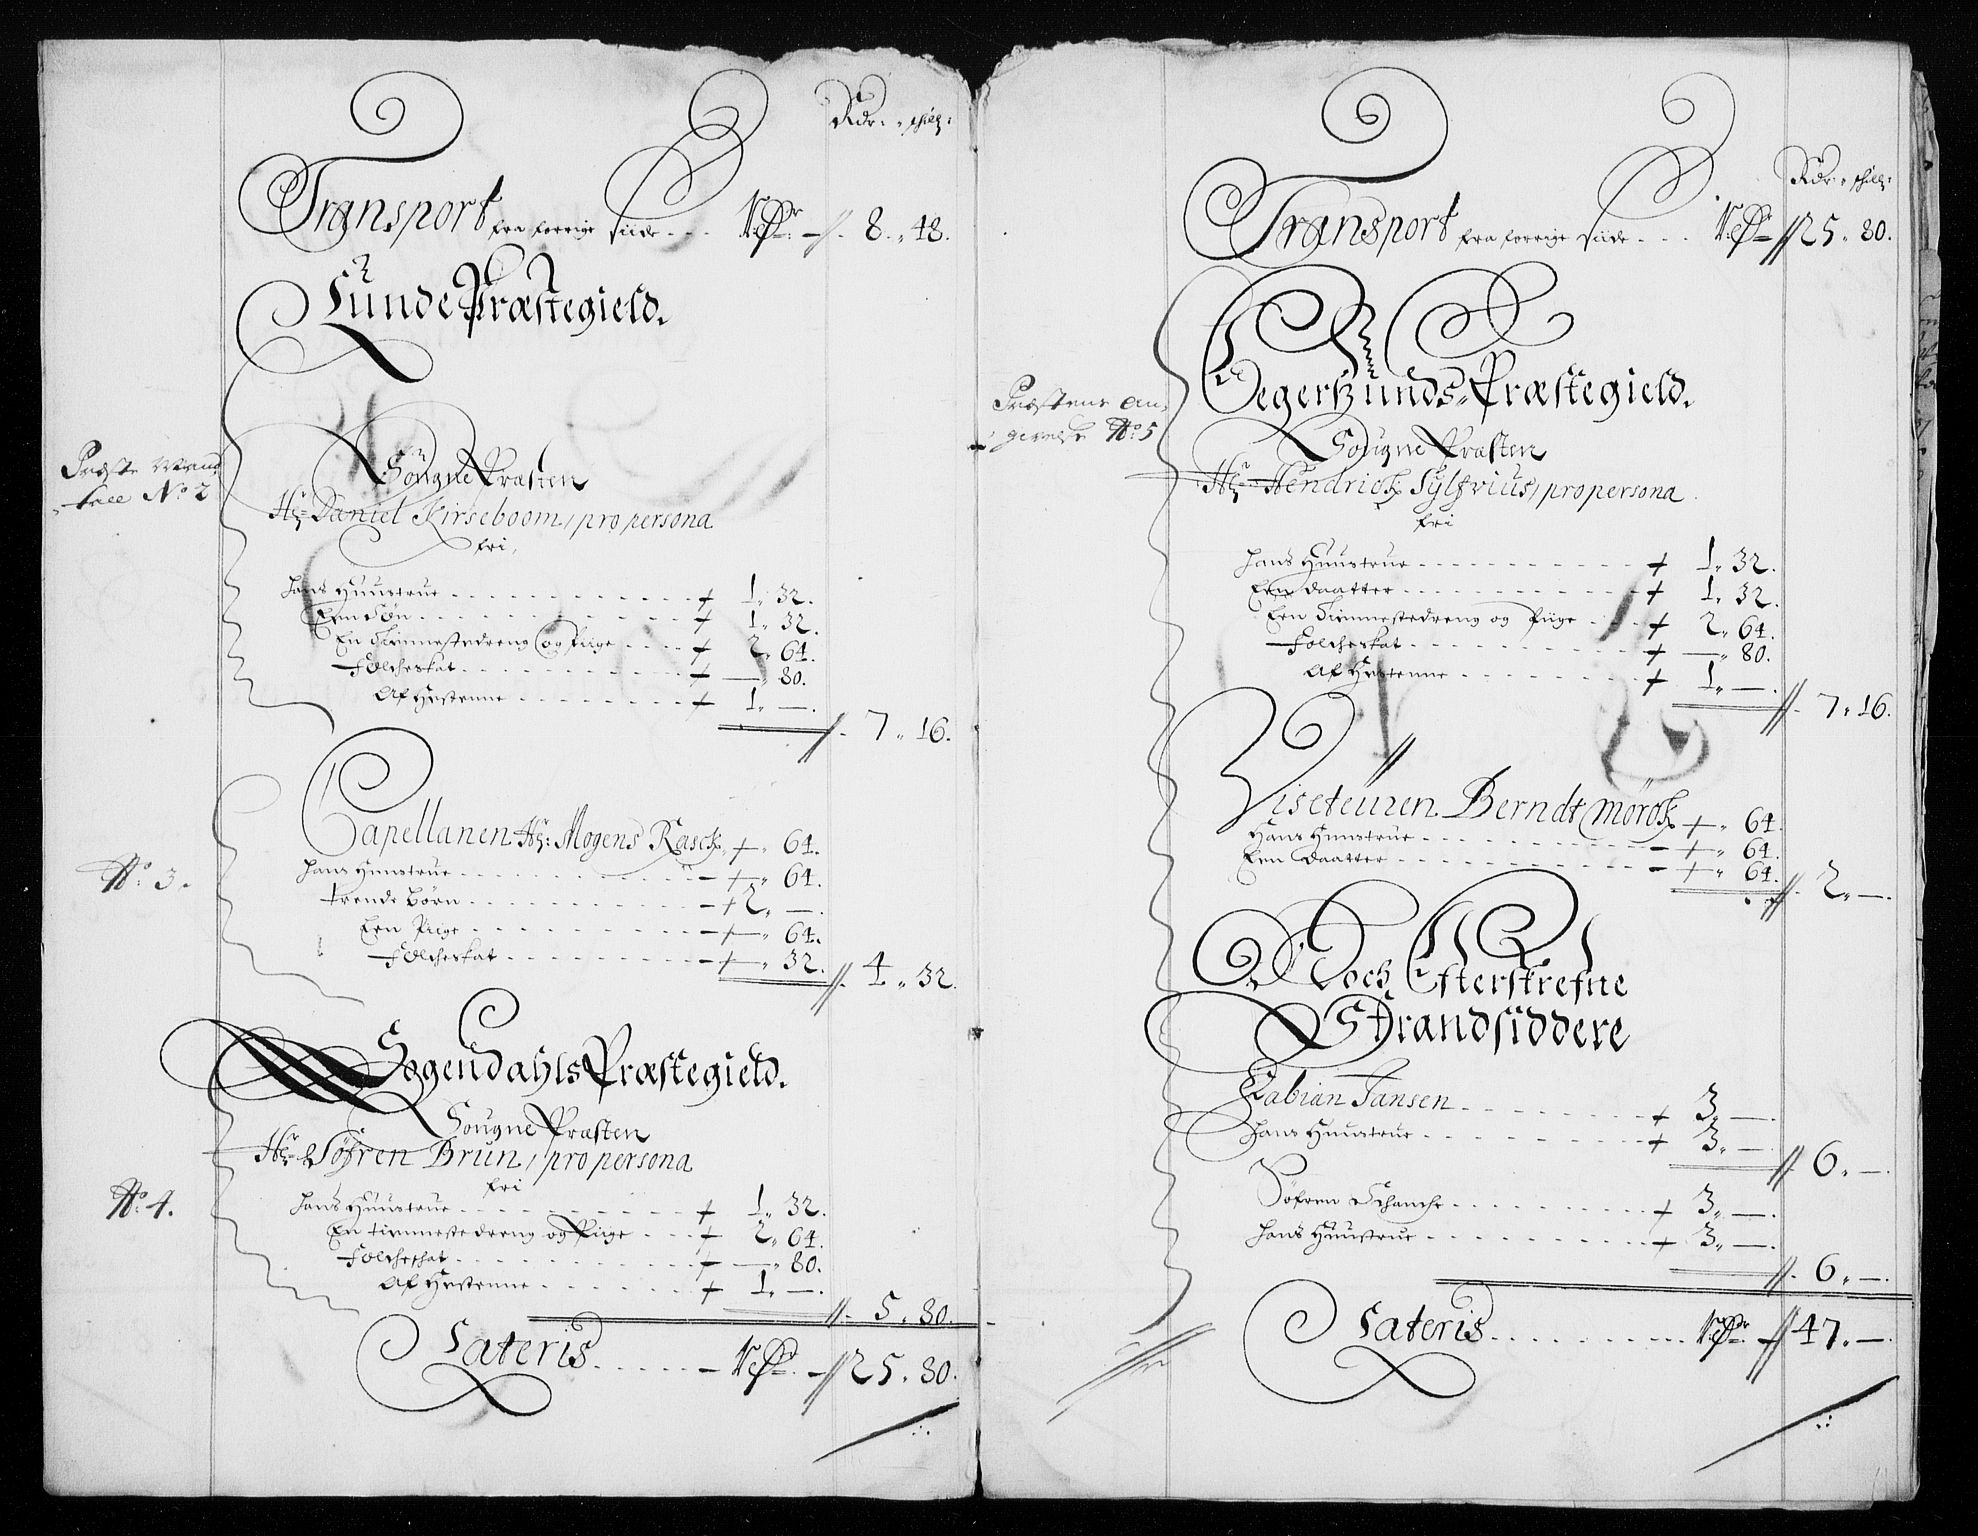 Rdr: schill:
Transport fra forrige siide - - - 8 „ 48.
Lunde Præstegield.
Sougne Præsten
Præste Mand
tall No 2
Hr: Daniel Kirseboom, pro persona
fri,
hans Huustrue + 1 „ 32.
Een Søn + 1 „ 32.
En Timmestedreng og Piige + 2 „ 64.
Folcheskat + — „ 80.
Af Hæstenne + 1 „ —.
7 „ 16.
Capellanen Hr: Mogens Rasch + „ 64.
No 3.
hans Huustrue + „ 64.
trende Børn + 2 „ —.
Een Piige + „ 64.
Folcheskat + „ 32.
4 „ 32.
Sogendahls Præstegield.
Sougne Præsten
Hr: Søfren Brun, pro persona
fri
No 4.
hans Huustrue + 1 „ 32.
En timmestedreng og Piige + 2 „ 64.
Folcheschat + — „ 80.
Af Hæstenne + 1 „ —.
5 „ 80.
Lateris 25 „ 80.
Rdr: schill:
Transport fra forrige siide - - - 25 „ 80.
Eegersunds Præstegield.
Præstens An-
givelse No 5
Sougne Præsten
Hr: Hendrich Sylfvius, pro persona
fri
hans Huustrue + 1 „ 32.
Een daatter + 1 „ 32.
Een Timmestedreng og Piige + 2 „ 64.
Folcheskat + — „ 80.
Af Hæstenne + 1 „ —.
7 „ 16.
Viseteuren Berndt Mørch + „ 64.
Hans Huustrue + „ 64.
Een Daatter + „ 64.
2 „ —.
Noch Efterskrefne
Strandsiddere
Fabian Jansen + 3 „ —.
hans Huustrue + 3 „ —.
6 „ —.
Søfren Schanche + 3 „ —.
hans Huustrue + 3 „ —.
6 „ —.
Lateris 47 „ —.